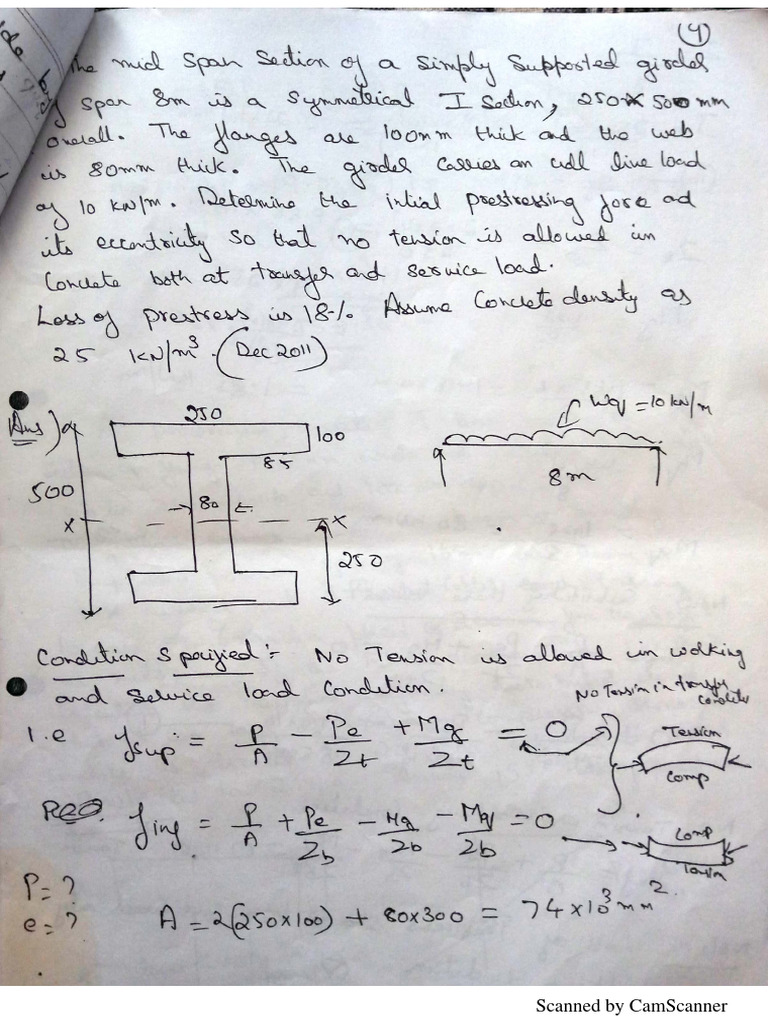 (4)
The mid span section of a simply supported girder
of span 8m is a symmetrical I section, 250 x 500 mm
overall. The flanges are 100mm thick and the web
is 80mm thick. The girder carries an udl live load
of 10 kN/m. Determine the intial prestressing force ad
its eccentricity so that no tension is allowed in
Concrete both at transfer and service load.
Loss of prestress is 18%. Assume Concrete density as
25 kN/m³. (Dec 2011)
Ans)
250
100
85
500
80
x
x
250
Wq = 10 kN/m
8m
Condition Specified:- No Tension is allowed in working
and service load Condition.
No Tension in transfer
condition
I.e fsup = P/A - Pe/Zt + Mg/Zt = 0
Tension
Comp
Req. finf = P/A + Pe/Zb - Mg/Zb - Mq/Zb = 0
Comp
Tension
P = ?
e = ?
A = 2(250x100) + 80x300 = 74x10³ mm²
Scanned by CamScanner